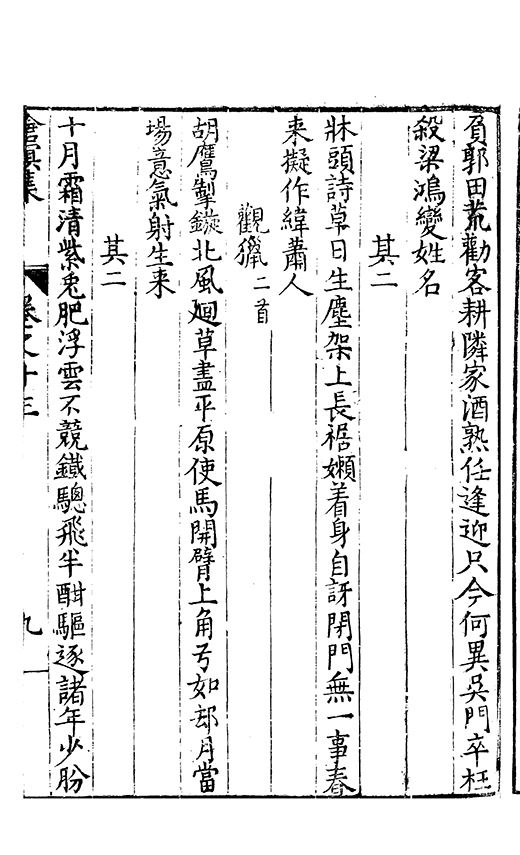 負郭田荒勸客耕隣家酒熟任逢迎只今何異吳門卒枉
殺梁鴻變姓名
其二
牀頭詩草日生塵架上長裾嬾着身自訝閉門無一事春
来擬作緯蕭人
觀獵二首
胡鷹掣鏇北風廻草盡平原使馬開臂上角弓如却月當
場意氣射生来
其二
十月霜清紫兎肥浮雲不競鐵驄飛半酣驅逐諸年少肦
滄溟集 卷之十三 九